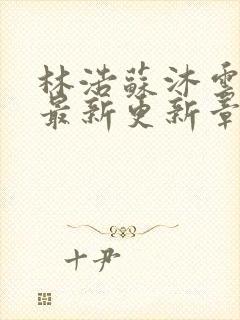 林浩蘇沐雪
最新更新章
十尹